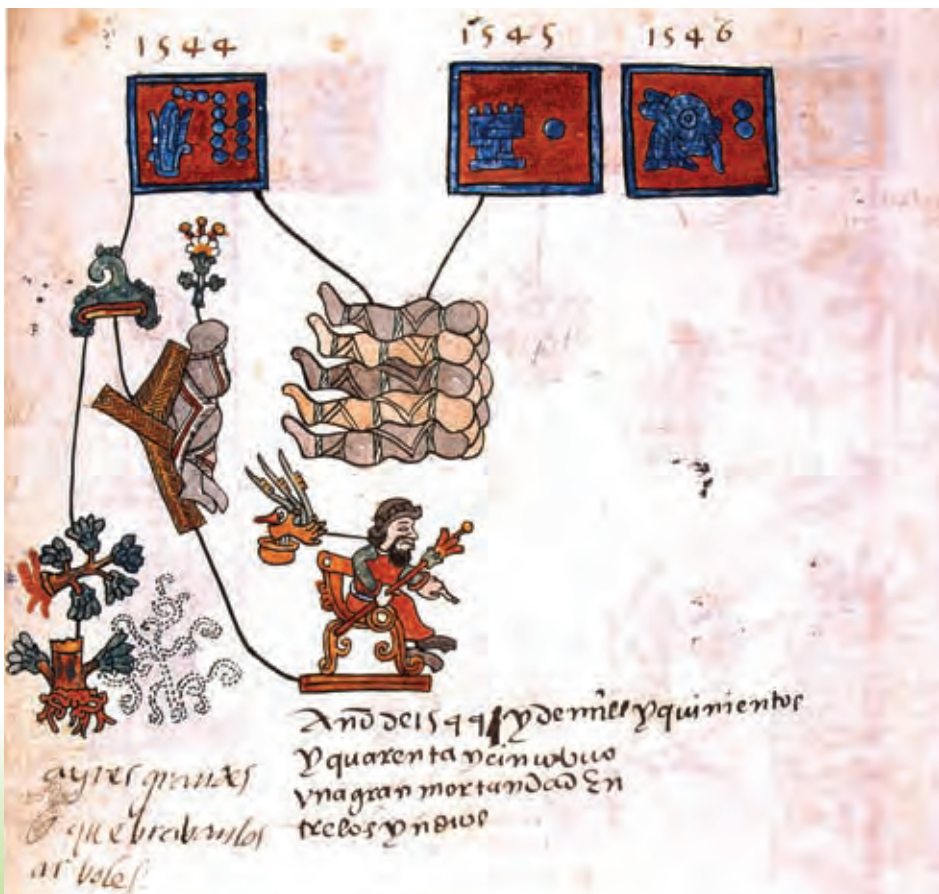 1544
1545
1546
Año de 1544 y de mill y quinientos
y quarenta y cinco hubo
vna gran mortandad en
tre los yndios
ayres grandes
que quebravan los
arboles